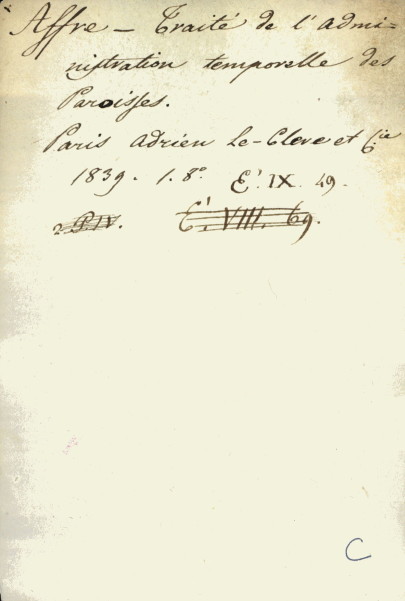 Affre — Traité de l'admi-
nistration temporelle des
Paroisses.
Paris Adrien Le-Clere et Cie
1839. 1. 8.° E'. IX. 49.
2 P. IV. E'. VIII. 69.
C